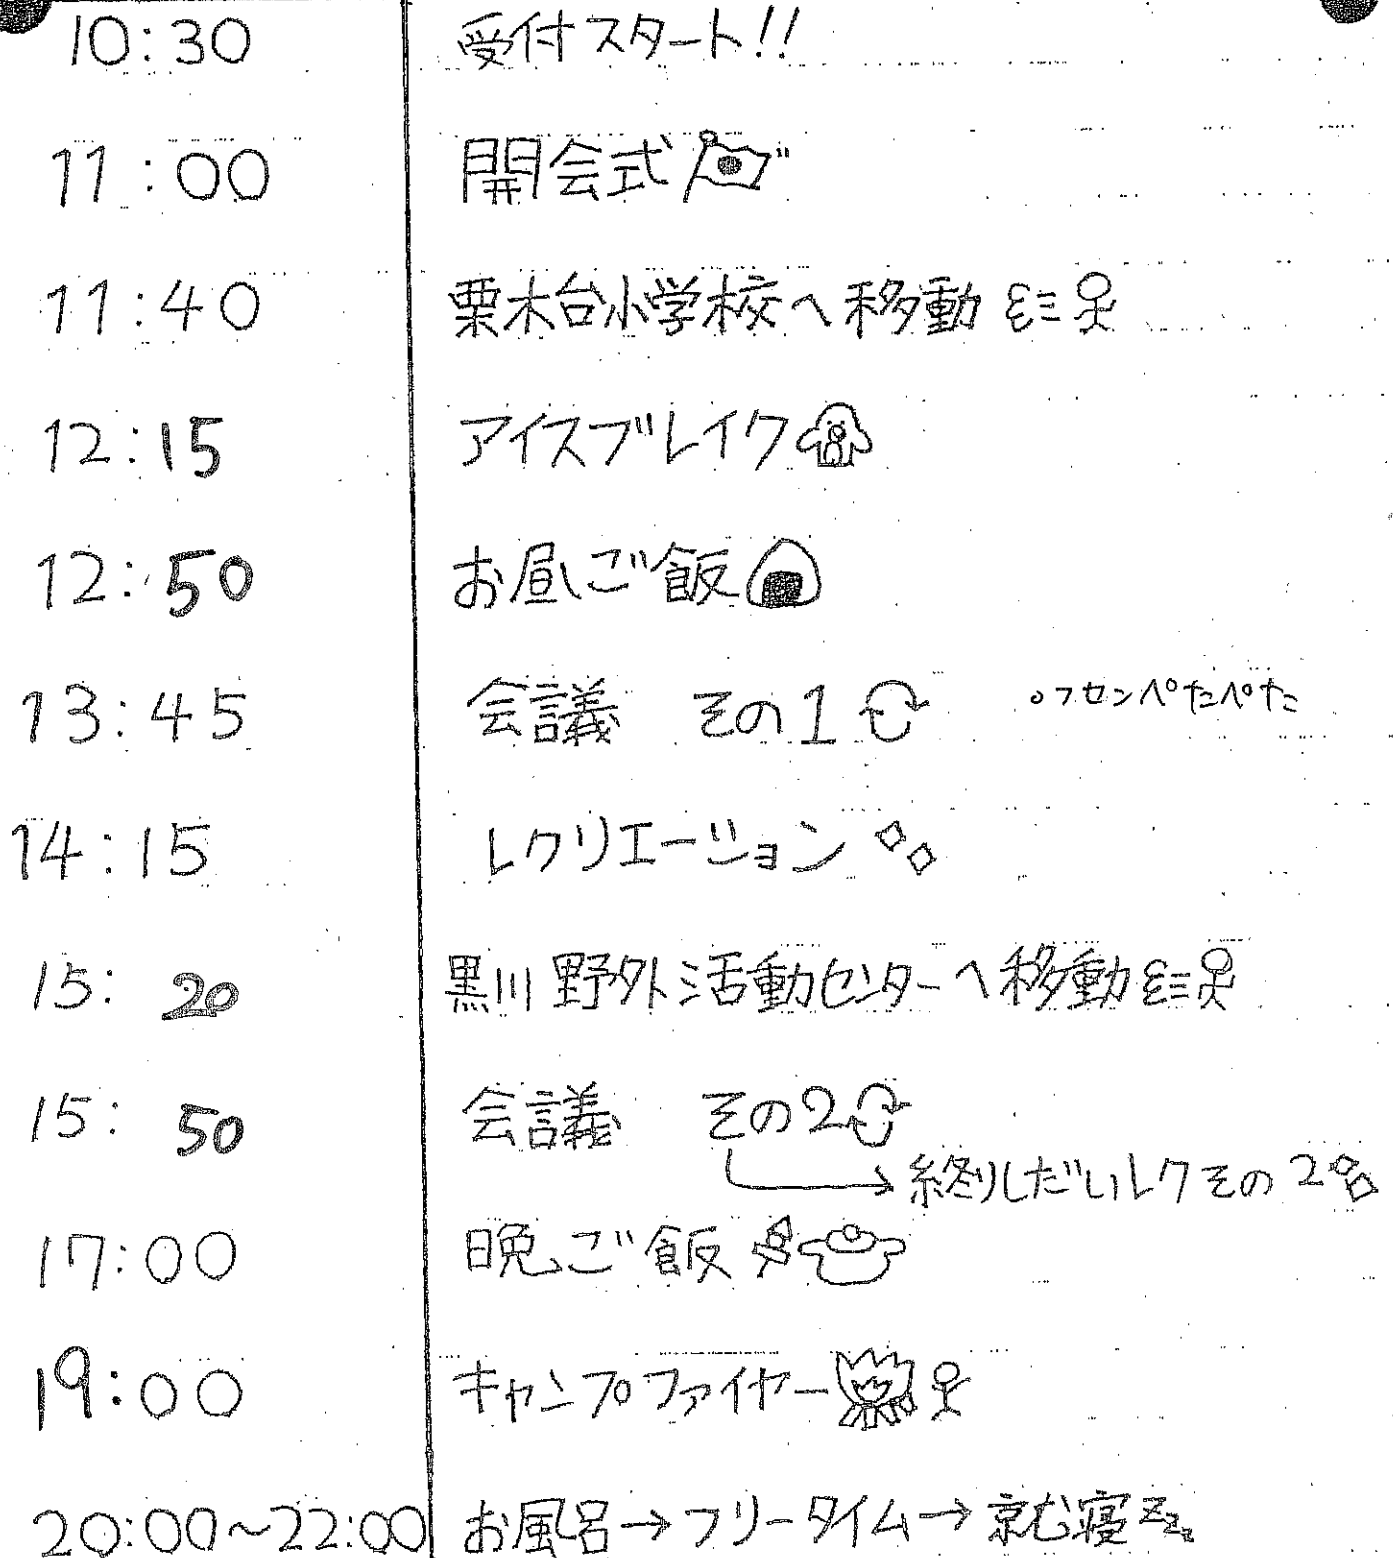 10:30 受付スタート!!
11:00 開会式
11:40 栗木台小学校へ移動
12:15 アイスブレイク
12:50 お昼ご飯
13:45 会議 その1 。フセンペたペた
14:15 レクリエーション
15:20 黒川野外活動センターへ移動
15:50 会議 その2
→終りしだいレクその2
17:00 晩ご飯
19:00 キャンプファイヤー
20:00~22:00 お風呂→フリータイム→就寝zzz